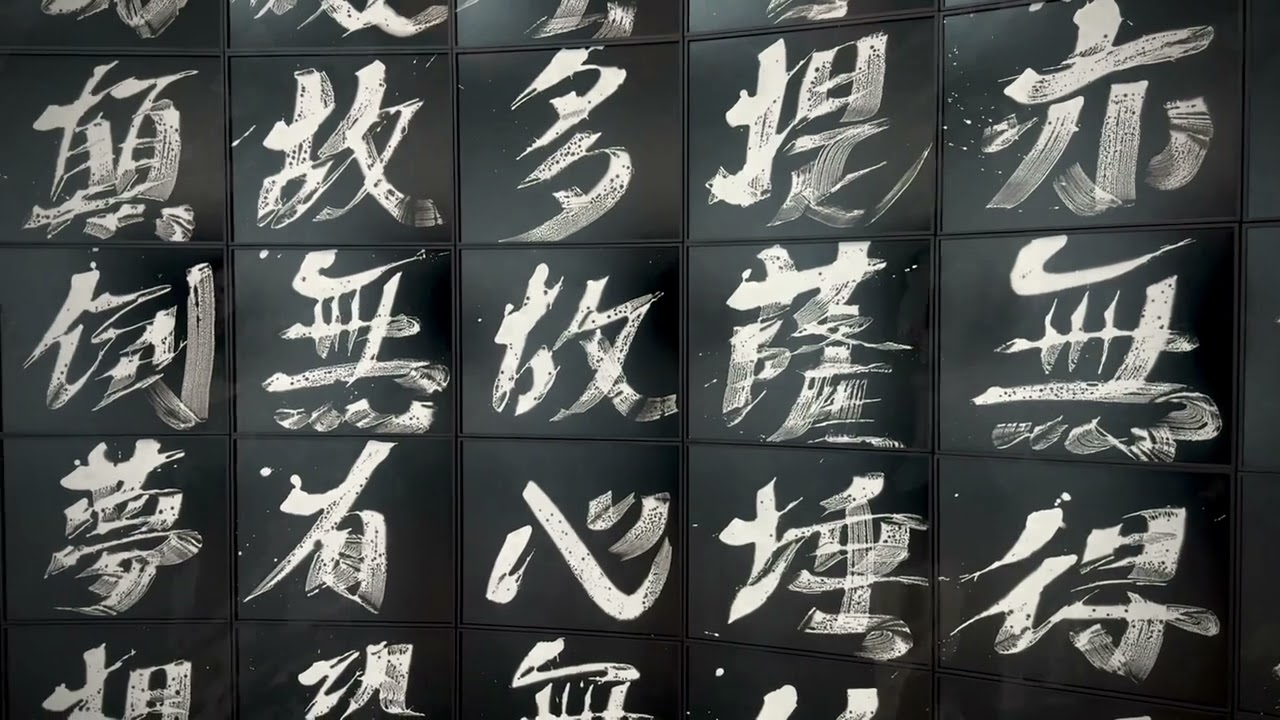 亦無得
提薩埵
多故心無
故無有恐
顛倒夢想